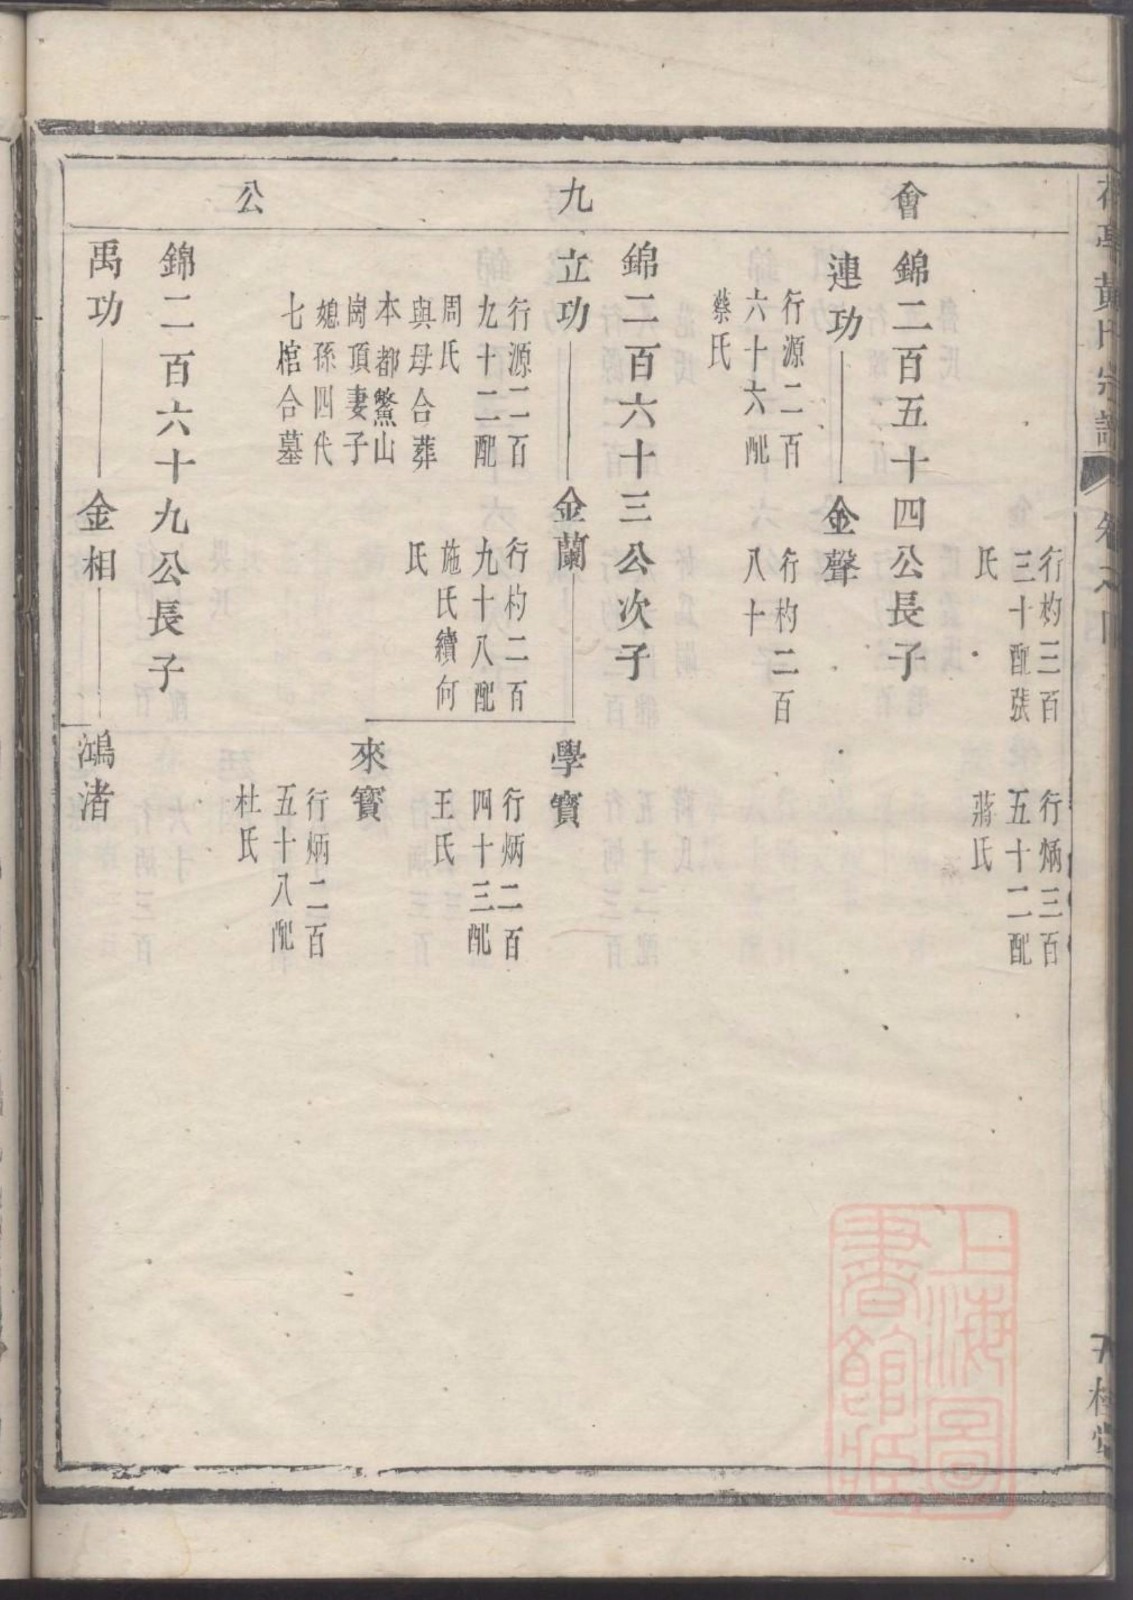 會
九
公
行杓三百
三十配張
氏
行炳三百
五十二配
蔣氏
錦二百五十四公長子
連功
金聲
行源二百
六十六配
蔡氏
行杓二百
八十
錦二百六十三公次子
立功
金蘭
學寶
行源二百
九十二配
周氏
與母合葬
本都鰲山
崗頂妻子
媳孫四代
七棺合墓
行杓二百
九十八配
施氏續何
氏
行炳二百
四十三配
王氏
來寶
行炳二百
五十八配
杜氏
錦二百六十九公長子
禹功
金相
鴻渚
黃氏宗譜
上海圖
書館藏